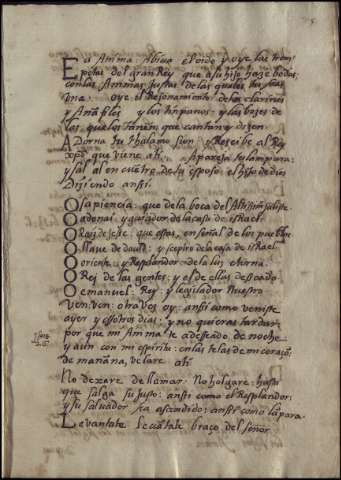 Ea Anima: Abiua el oido y oye las trom
petas del gran Rey que a su hijo haze bodas,
con las Animas justas de las quales tu eres
vna. oye el Resonamiento de los clarines
y Anafiles y los tinpanos: y las bozes de
los que los tañen, que cantan y dizen.
ADorna tu thalamo sion, y Resciue al Rey
xpo que viene a ti. Apareja tu lampara:
y sal al encuētro de la esposo el hijo de dios
Diziendo ansi.
O sapiencia: que de la boca del Altissimo saliste
O adonai: y guiador de la casa de isRael.
O Raiz de Jesse: que estas, en señal de los pueblos
O llaue de dauid: y sceptro de la casa de isRael.
O oriente: y Resplandor de la luz eterna.
O Rei de las gentes: y el de ellas desseado.
O emanuel: Rey: y legislador nuestro
ven: ven: otra ves oy: ansi como veniste
ayer y essotros dias: y no quieras tardar
por que mi Anima te a desseado de noche
y aun con mi espiritu: en las telas de mi coraçō:
de mañana, velare a ti.
No dexare de llamar. No holgare: hasta
que salga su justo: ansi como el Resplandor:
y su saluador sea ascendido: ansi como lāpara.
Leuantate. Leuātate braço del señor